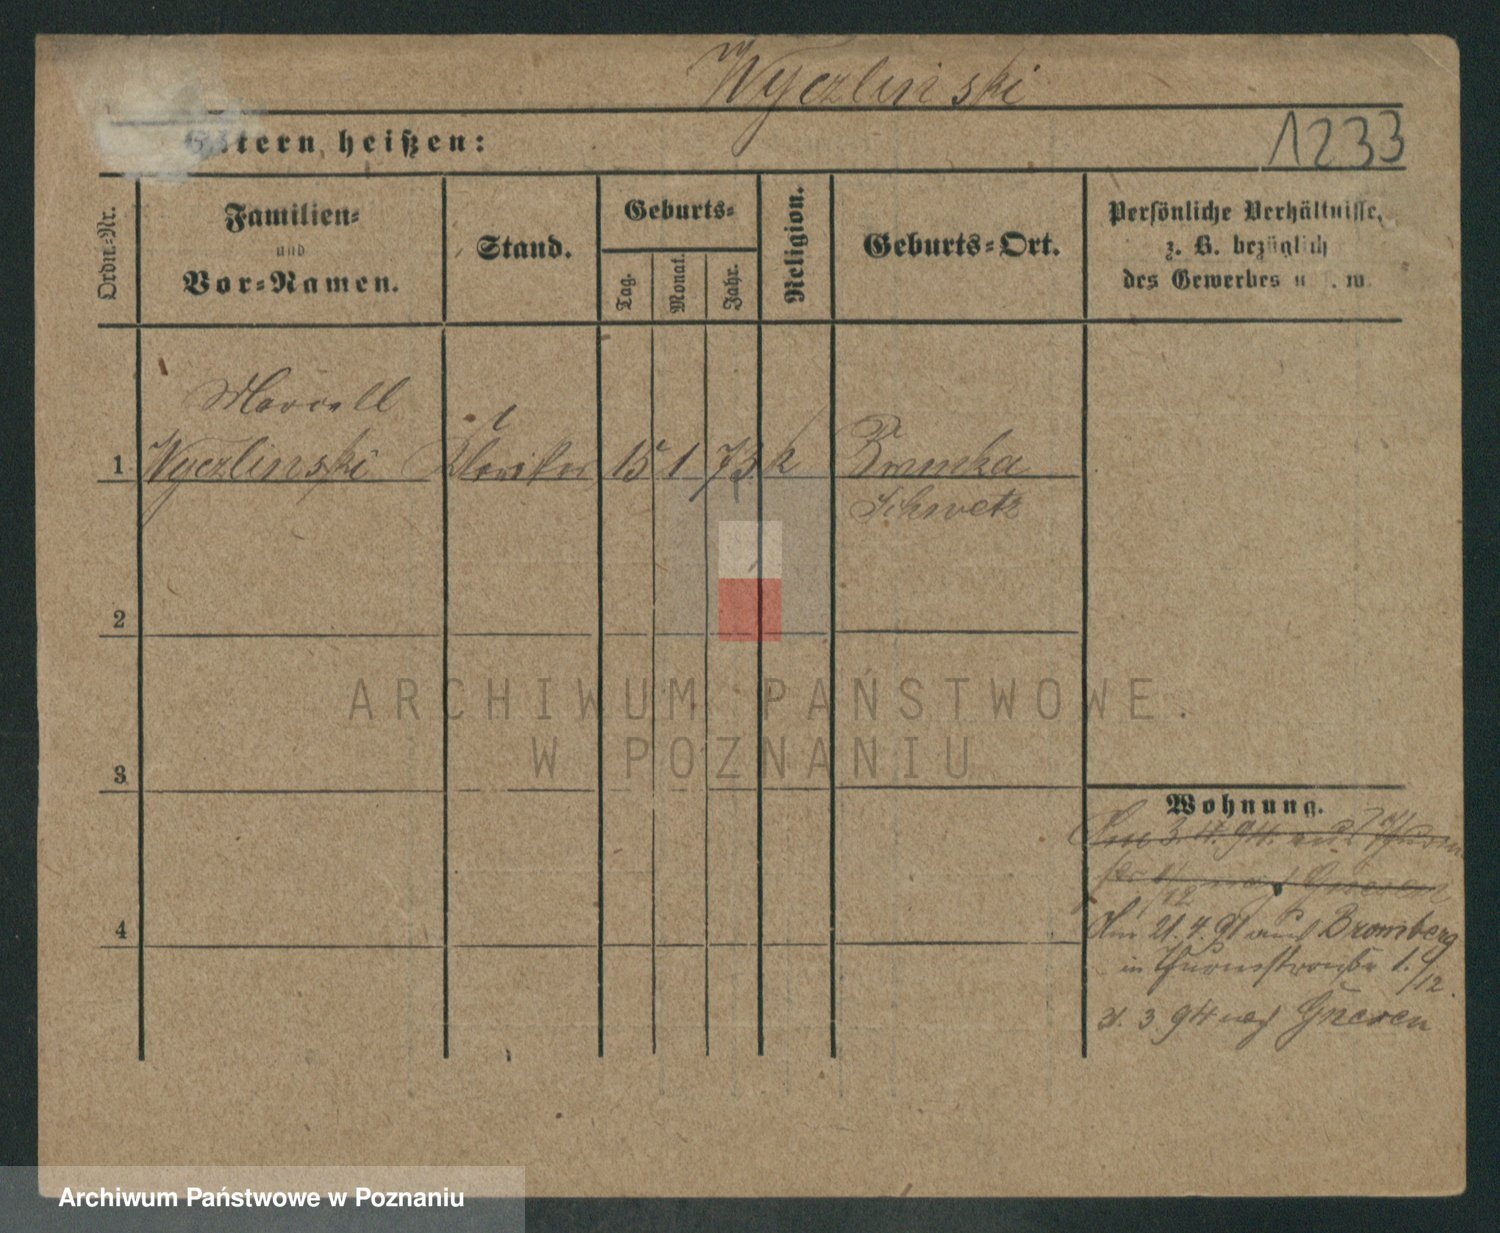 Wyczlinski
Eltern heißen:
1233
Ordn.=Nr.
Familien=
und
Vor=Namen.
Stand.
Geburts=
Tag.
Monat.
Jahr.
Religion.
Geburts=Ort.
Persönliche Verhältnisse,
z. B. bezüglich
des Gewerbes u. s. w.
Marcell
1 Wyczlinski Kleriker 15 1 73 k
Schwetz
2
3
4
Wohnung.
Am 3. 4. 94. nach
nach Gnesen
Am 21. 4. 91 aus Bromberg
in Thurmstraße 1. /12.
3 94 nach Gnesen
ARCHIWUM PAŃSTWOWE
W POZNANIU
Archiwum Państwowe w Poznaniu